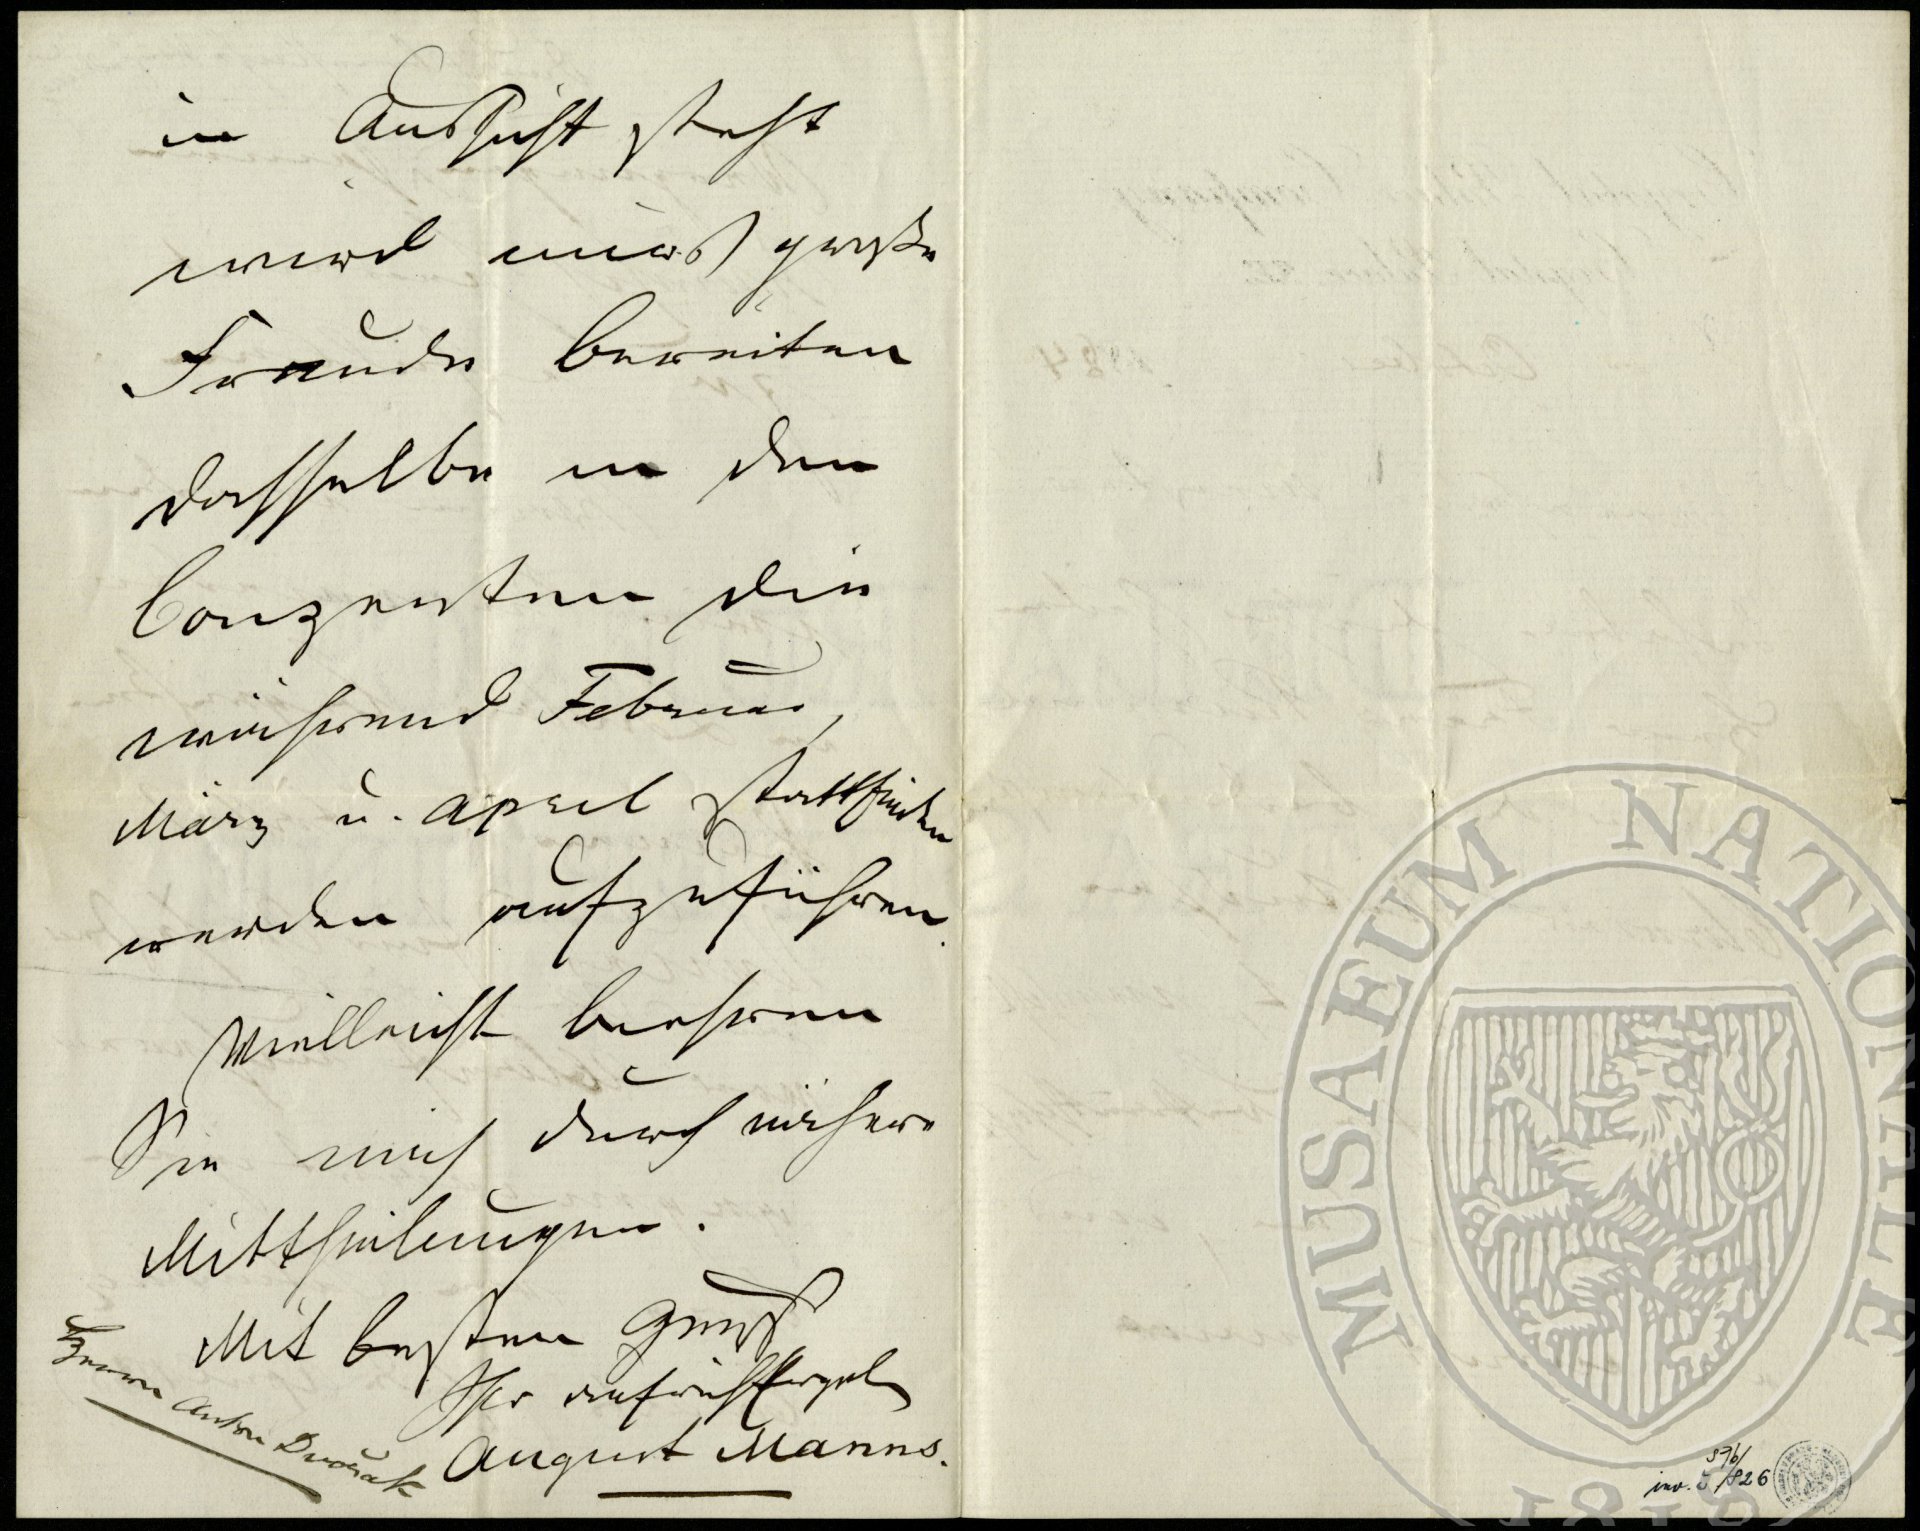 in Aussicht steht
wird mir's große
Freude bereiten
dasselbe in den
Conzerten die
während Februar,
März u. April stattfinden
werden aufzuführen.
Vielleicht beehren
Sie mich durch nähere
Mittheilungen.
Mit besten Gruß
Ihr aufrichtig erge
August Manns.
Herrn Anton Dvořák
MUSAEUM NATIONALE
1818
inv. 5/826